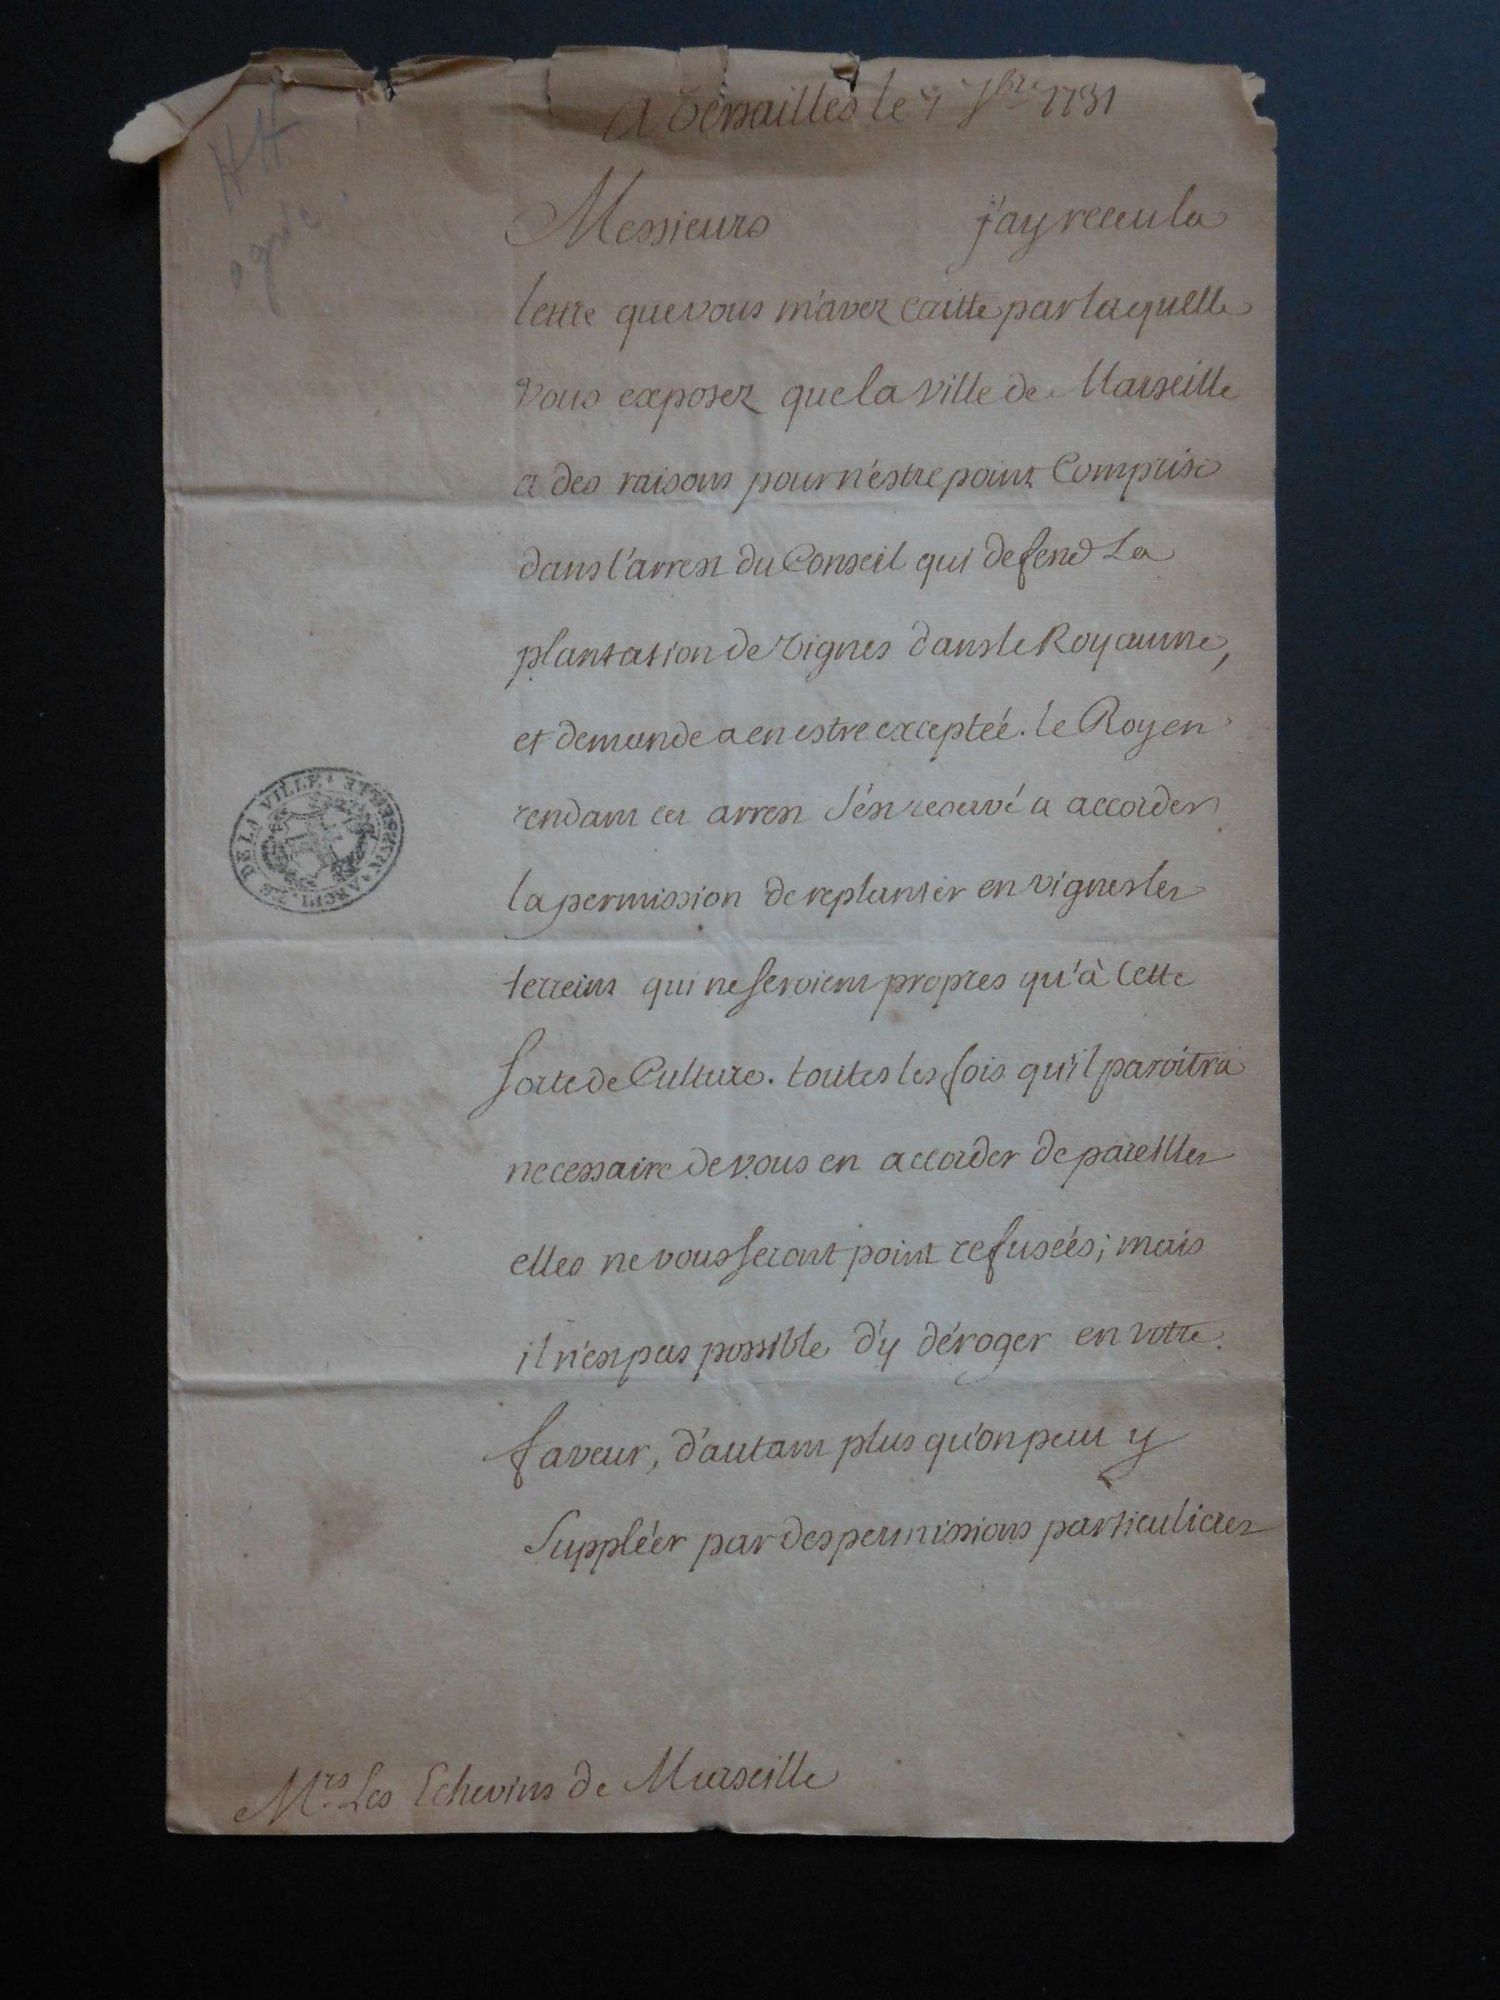 A Versailles le 7 Jbre 1731
Messieurs j'ay receu la
lettre que vous m'avez ecritte par laquelle
vous exposez que la ville de Marseille
a des raisons pour n'estre point Comprise
dans l'arrest du Conseil qui defend La
plantation de vignes dans le Royaume,
et demande a en estre exceptée. le Roy en
rendant cet arrest s'est reservé a accorder
la permission de replanter en vignes les
terreins qui ne seroient propres qu'à Cette
sorte de Culture. toutes les fois qu'il paroîtra
necessaire de vous en accorder de pareilles
elles ne vous seront point refusées; mais
il n'est pas possible d'y déroger en votre
faveur, d'autant plus qu'on peut y
suppléer par des permissions particulieres
Mrs. Les Echevins de Marseille
HH
ARCHIVES DE LA VILLE MARSEILLE